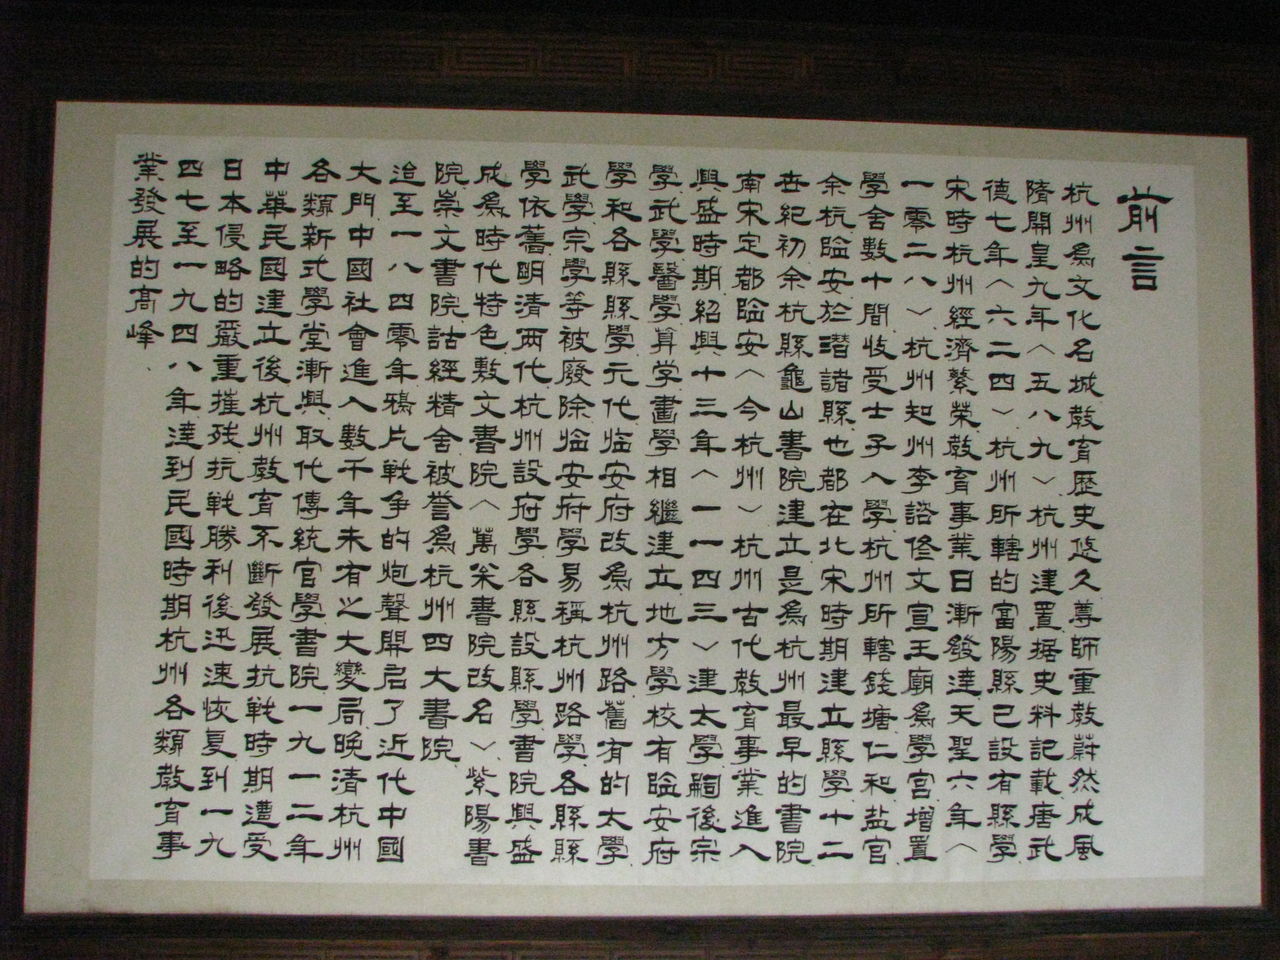 前言
杭州為文化名城教育歷史悠久尊師重教蔚然成風
隋開皇九年（五八九）杭州建置據史料記載唐武
德七年（六二四）杭州所轄的富陽縣已設有縣學
宋時杭州經濟繁榮教育事業日漸發達天聖六年（
一零二八）杭州知州李諮修文宣王廟為學宮增置
學舍數十間收受士子入學杭州所轄錢塘仁和盐官
余杭臨安於潛諸縣也都在北宋時期建立縣學十二
世紀初余杭縣龜山書院建立是為杭州最早的書院
南宋定都臨安（今杭州）杭州古代教育事業進入
興盛時期紹興十三年（一一四三）建太學嗣後宗
學武學醫學算学畫學相繼建立地方學校有臨安府
學和各縣縣學元代临安府改為杭州路舊有的太學
武學宗學等被廢除临安府學易稱杭州路學各縣縣
學依舊明清兩代杭州設府學各縣設縣學書院興盛
成為時代特色敷文書院（萬松書院改名）紫陽書
院崇文書院詁經精舍被誉為杭州四大書院
迨至一八四零年鴉片戰争的炮聲開启了近代中國
大門中國社會進入數千年未有之大變局晚清杭州
各類新式學堂漸興取代傳統官學書院一九一二年
中華民國建立後杭州教育不斷發展抗戰時期遭受
日本侵略的嚴重摧残抗戰勝利後迅速恢复到一九
四七至一九四八年達到民國時期杭州各類教育事
業發展的高峰